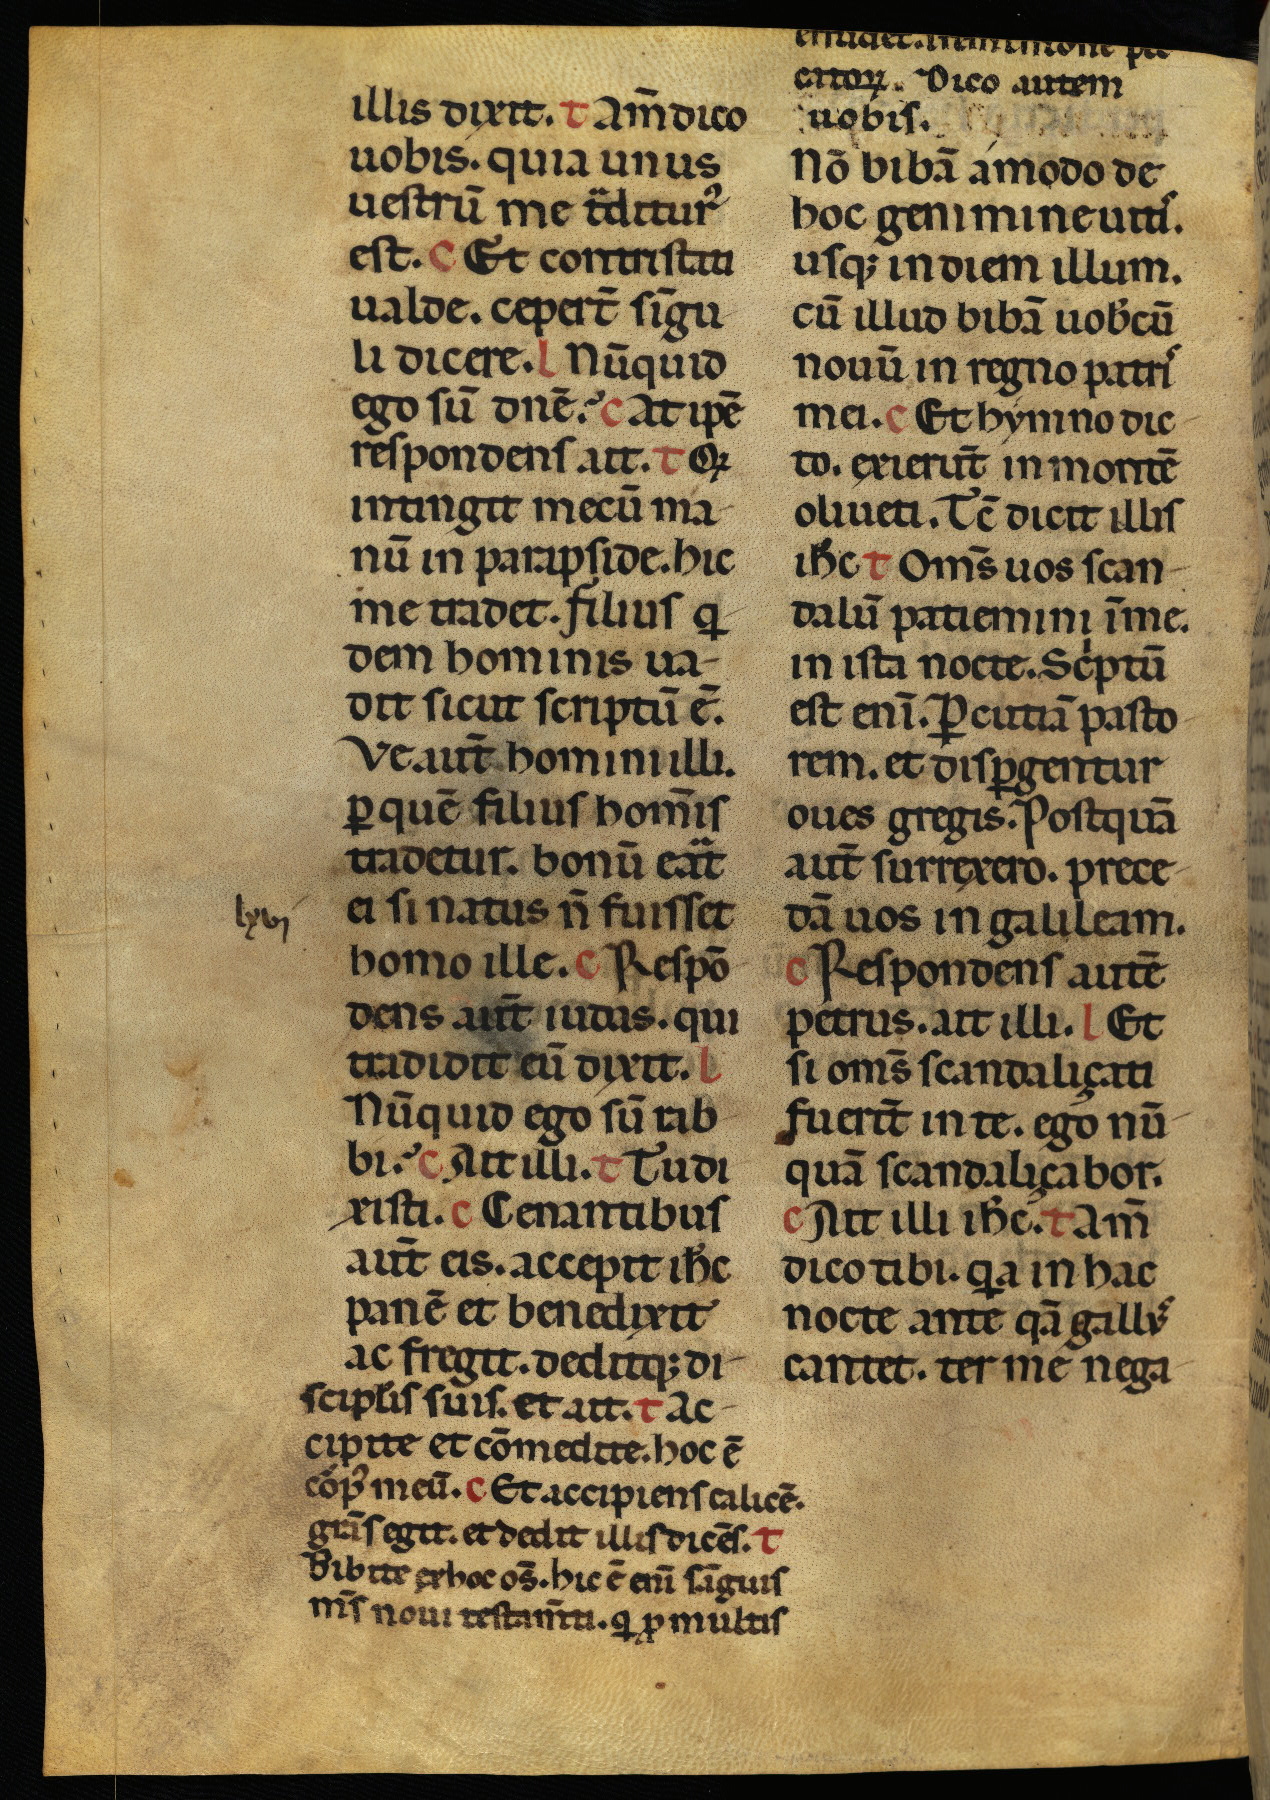 illis dixit. t Am̄ dico
uobis. quia unus
uestrū me tͣditurꝰ
est. C Et contristati
ualde. ceper̄t sīgu
li dicere. l Nūquid
ego sū dn̄e? c At ip̄e
respondens ait. t Qͥ
intingit mecū ma
nū in parapside. hic
me tradet. filius qͥ
dem hominis ua
dit sicut scriptū ē.
Ve aut̄ homini illi.
ꝑ quē filius homīs
tradetur. bonū eͣt
ei si natus n̄ fuisset
lxvj
homo ille. c Respō
dens aut̄ iudas. qui
tradidit eū dixit. l
Nūquid ego sū rab
bi? c Ait illi. t Tu di
xisti. c Cenantibus
aut̄ eis. accepit ih̄c
panē et benedixit
ac fregit. deditqꝫ di
scipl̄is suis. et ait. t Ac
cipite et cōmedite. hoc ē
corpꝰ meū. c Et accipiens calicē.
grās egit. et dedit illis dicēs. t
Bibite ex hoc os̄. hic ē eni̅ sāguis
m̄s noui testam̄ti. qͥ ꝓ multis
citoꝝ. Dico autem
uobis.
Nō bibā ámodo de
hoc genimine uitͥs.
usqꝫ in diem illum.
cū illud bibā uob̄cū
nouū in regno patrͥs
mei. c Et hymno dic
to. exierūt in montē
oliueti. Tc̄ dicit illis
ih̄c t Om̄s uos scan
dalū patiemini ī me.
in ista nocte. Scͥptū
est enī. Ꝑcutiā pasto
rem. et disꝑgentur
oues gregis. Postquā
aut̄ surrexero. prece
dā uos in galileam.
c Respondens autē
petrus. ait illi. l Et
si om̄s scandaliçati
fuerīt in te. ego nū
quā scandaliçabor.
c Ait illi ih̄c. t Am̄
dico tibi. qͥa in hac
nocte ante qͣ̄ gallꝰ
cantet. ter me nega